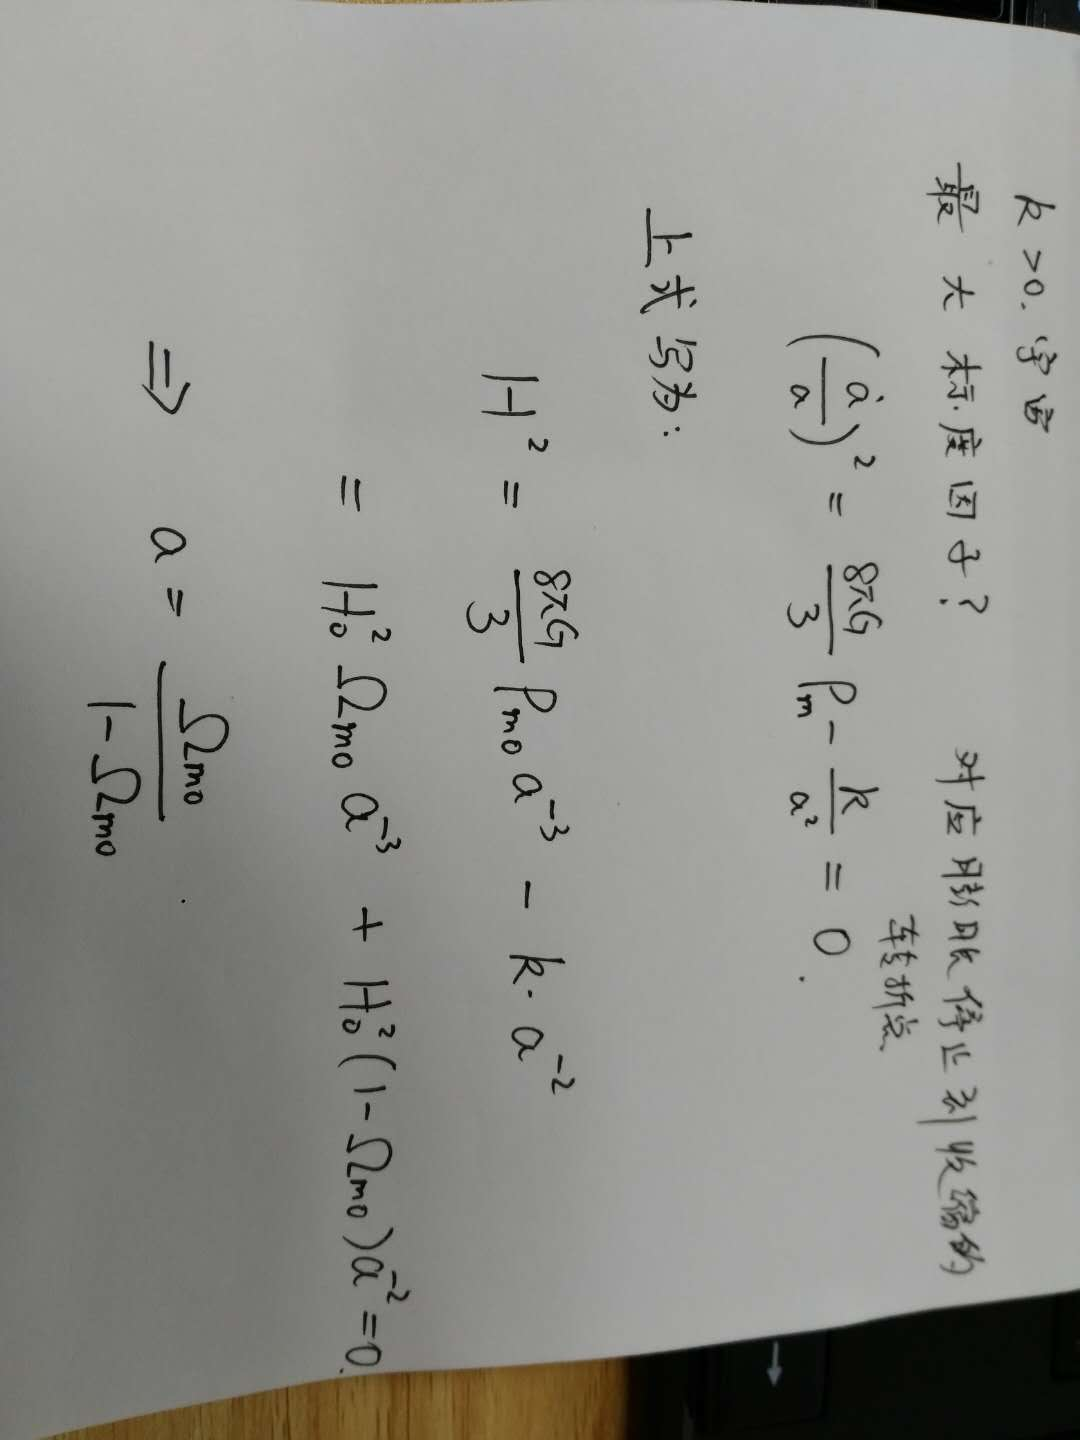 k>0. 宇宙
最大标度因子? 对应膨胀停止到收缩的
转折点
(ȧ/a)² = 8πG/3 ρm − k/a² = 0.
上式写为:
H² = 8πG/3 ρm0 a⁻³ − k·a⁻²
= H0² Ωm0 a⁻³ + H0²(1−Ωm0)a⁻² = 0.
⇒ a = Ωm0/1−Ωm0 .